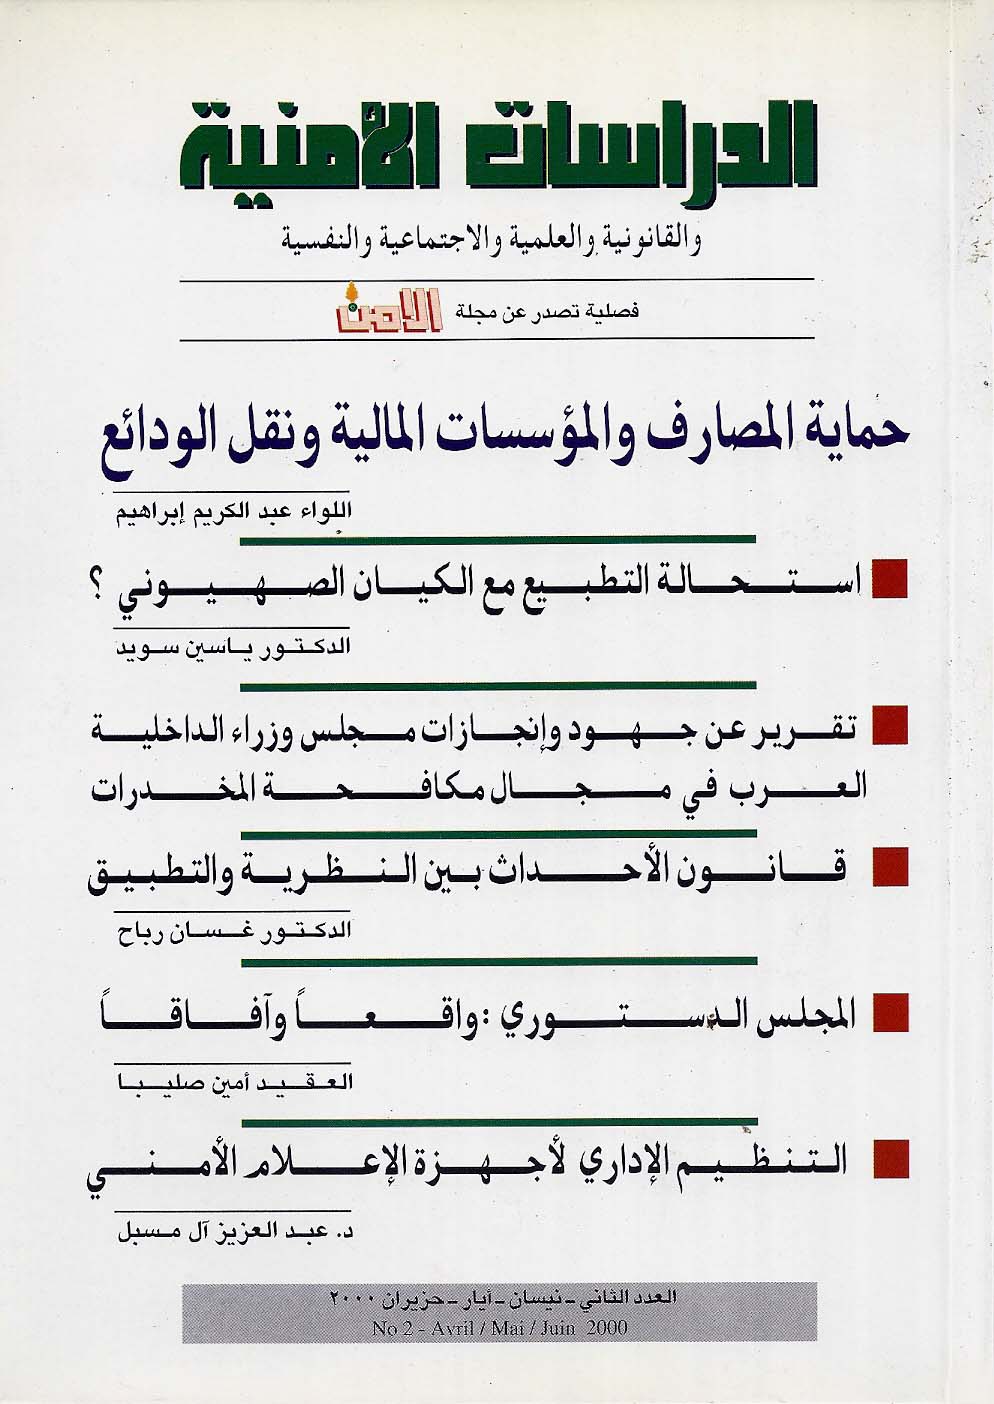 الدراسات الأمنية
والقانونية والعلمية والاجتماعية والنفسية
فصلية تصدر عن مجلة الامن
حماية المصارف والمؤسسات المالية ونقل الودائع
اللواء عبد الكريم إبراهيم
استحالة التطبيع مع الكيان الصهيوني ؟
الدكتور ياسين سويد
تقرير عن جهود وإنجازات مجلس وزراء الداخلية
العرب في مجال مكافحة المخدرات
قانون الأحداث بين النظرية والتطبيق
الدكتور غسان رباح
المجلس الدستوري : واقعاً وآفاقاً
العقيد أمين صليبا
التنظيم الإداري لأجهزة الإعلام الأمني
د. عبد العزيز آل مسبل
العدد الثاني - نيسان - أيار - حزيران ٢٠٠٠
No 2 - Avril / Mai / Juin 2000